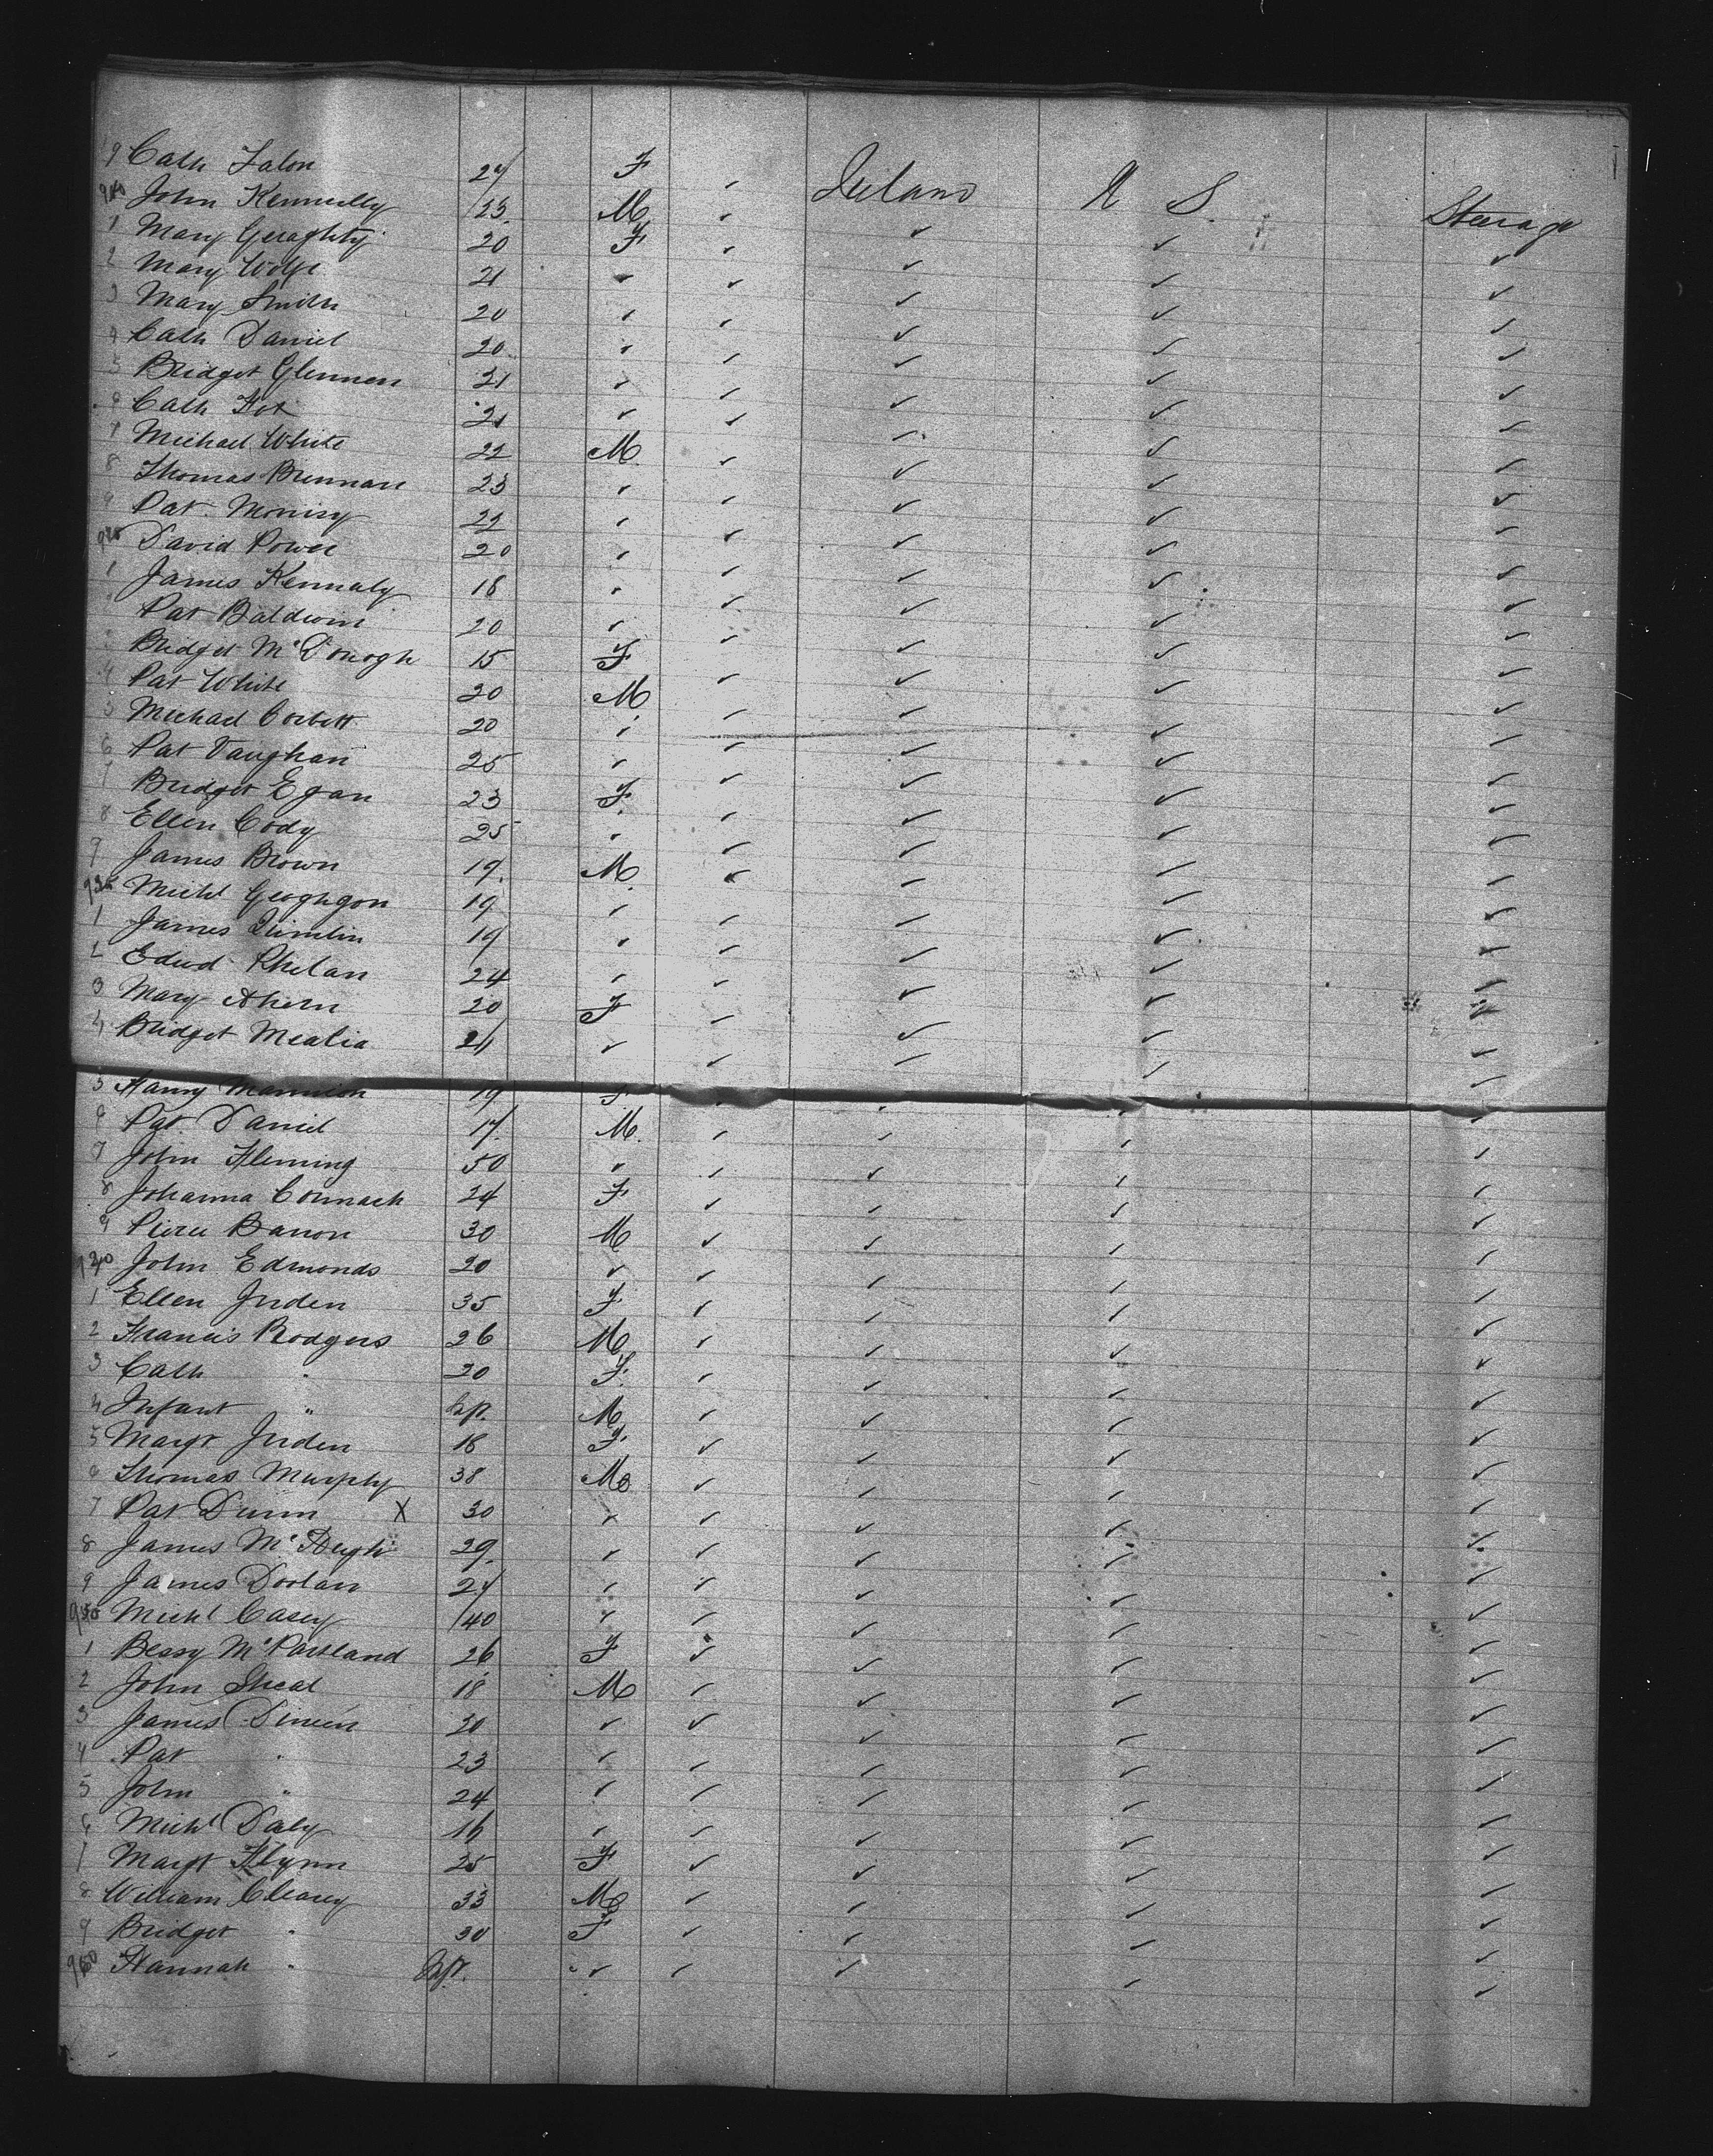 9 Cath Falon 27 F Ireland U S. Steerage
John Kennelly 23 M ✓ ✓ ✓
1 Mary Geraghty 20 F ✓ ✓ ✓
2 Mary Wolfe 21 ✓ ✓ ✓ ✓ ✓
3 Mary Smith 20 ✓ ✓ ✓ ✓ ✓
4 Cath Daniel 20 ✓ ✓ ✓ ✓ ✓
5 Bridget Glennen 21 ✓ ✓ ✓ ✓ ✓
Cath Fox 21 ✓ ✓ ✓ ✓ ✓
Michael White 22 M ✓ ✓ ✓ ✓
8 Thomas Brennan 23 ✓ ✓ ✓ ✓ ✓
9 Pat. 22 ✓ ✓ ✓ ✓ ✓
David Power 20 ✓ ✓ ✓ ✓ ✓
1 James Kennaly 18 ✓ ✓ ✓ ✓ ✓
Pat Baldwin 20 ✓ ✓ ✓ ✓ ✓
3 Bridget McDonogh 15 F ✓ ✓ ✓ ✓
4 Pat White 20 M ✓ ✓ ✓ ✓
5 Michael Corbett 20 ✓ ✓ ✓ ✓ ✓
6 Pat Vaughan 25 ✓ ✓ ✓ ✓ ✓
7 Bridget Egan 23 F ✓ ✓ ✓ ✓
8 Ellen Cody 25 ✓ ✓ ✓ ✓ ✓
9 James Brown 19. M ✓ ✓ ✓ ✓
Michl Geoghgon 19 ✓ ✓ ✓ ✓ ✓
1 James 19 ✓ ✓ ✓ ✓ ✓
2 Edwd Phelan 24 ✓ ✓ ✓ ✓ ✓
3 Mary Ahern 20 F ✓ ✓ ✓ ✓
4 Bridget Mealia 21 ✓ ✓ ✓ ✓ ✓
5 19 F ✓ ✓ ✓ ✓
Pat Daniel 17. M ✓ ✓ ✓ ✓
7 John Fleming 50 ✓ ✓ ✓ ✓ ✓
8 Johanna Cormack 24 F ✓ ✓ ✓ ✓
9 Pierce Barron 30 M ✓ ✓ ✓ ✓
John Edmonds 20 ✓ ✓ ✓ ✓ ✓
1 Ellen Jriden 35 F ✓ ✓ ✓ ✓
2 Francis Rodgers 26 M ✓ ✓ ✓ ✓
3 Cath " 20 F ✓ ✓ ✓ ✓
4 Infant " M ✓ ✓ ✓ ✓
5 Margt Jriden 18 F ✓ ✓ ✓ ✓
6 Thomas Murphy 38 M ✓ ✓ ✓ ✓
7 Pat Dunn X 30 ✓ ✓ ✓ ✓ ✓
8 James McHugh 29 ✓ ✓ ✓ ✓ ✓
9 James Doolan 27 ✓ ✓ ✓ ✓ ✓
950 Michl Casey 40 ✓ ✓ ✓ ✓ ✓
1 Bessy McPartland 26 F ✓ ✓ ✓ ✓
2 John Sheal 18 M ✓ ✓ ✓ ✓
3 James Dineen 20 ✓ ✓ ✓ ✓ ✓
4 Pat " 23 ✓ ✓ ✓ ✓ ✓
5 John " 24 ✓ ✓ ✓ ✓ ✓
6 Michl Daly 16 ✓ ✓ ✓ ✓ ✓
7 Margt Flynn 25 F ✓ ✓ ✓ ✓
8 William Cleary 33 M ✓ ✓ ✓ ✓
9 Bridget " 30 F ✓ ✓ ✓ ✓
960 Hannah " ✓ ✓ ✓ ✓ ✓